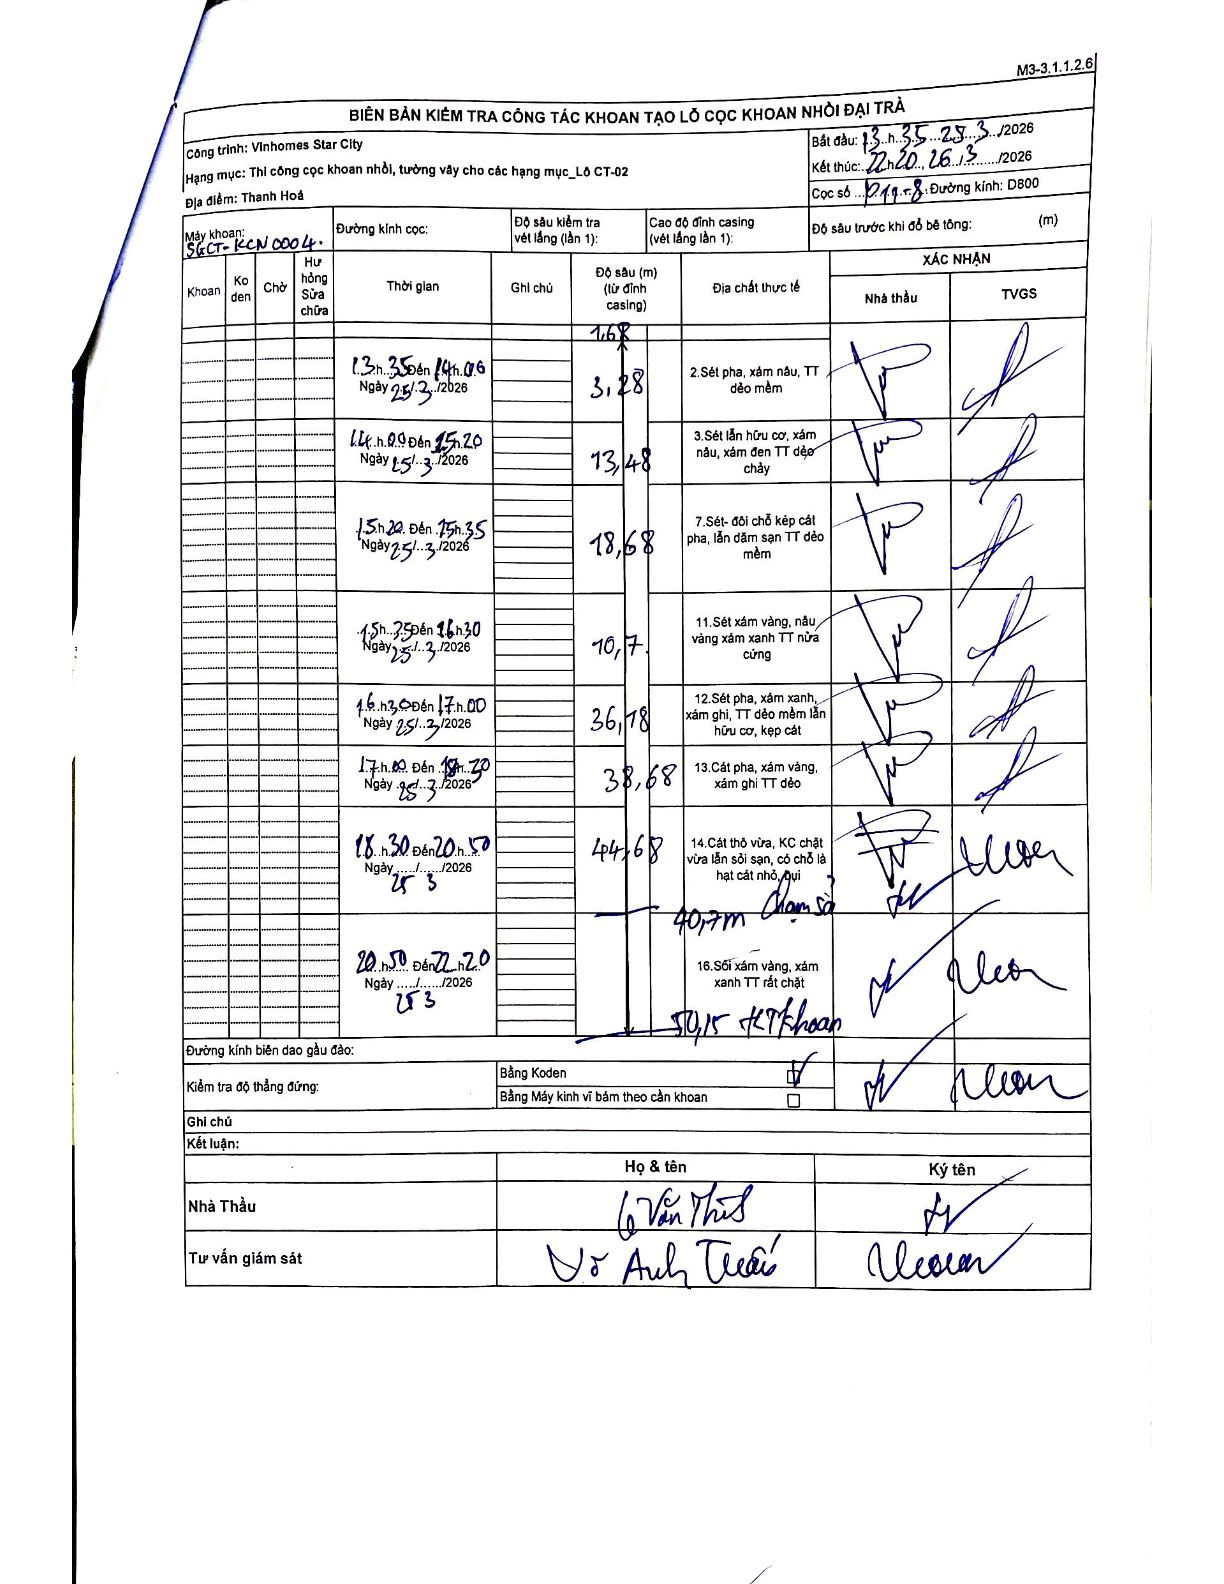 M3-3.1.1.2.6
BIÊN BẢN KIỂM TRA CÔNG TÁC KHOAN TẠO LỖ CỌC KHOAN NHỒI ĐẠI TRÀ
Công trình: Vinhomes Star City
Hạng mục: Thi công cọc khoan nhồi, tường vây cho các hạng mục_Lô CT-02
Địa điểm: Thanh Hoá
Bắt đầu: 13..h..35...25..3.../2026
Kết thúc: 22h20..26./3....../2026
Cọc số ... Đường kính: D800
Máy khoan:
SGCT-KCN0004.
Đường kính cọc:
Độ sâu kiểm tra
vét lắng (lần 1):
Cao độ đỉnh casing
(vét lắng lần 1):
Độ sâu trước khi đổ bê tông: (m)
Khoan
Ko
den
Chờ
Hư
hỏng
Sửa
chữa
Thời gian
Ghi chú
Độ sâu (m)
(từ đỉnh
casing)
Địa chất thực tế
XÁC NHẬN
Nhà thầu
TVGS
1,68
13.h..35 Đến 14h.06
Ngày 25/.3../2026
3,28
2.Sét pha, xám nâu, TT
dẻo mềm
14..h.00 Đến 15h.20
Ngày 25/..3../2026
13,48
3.Sét lẫn hữu cơ, xám
nâu, xám đen TT dẻo
chảy
15.h.20. Đến .15h.35
Ngày 25/..3./2026
18,68
7.Sét- đôi chỗ kép cát
pha, lẫn dăm sạn TT dẻo
mềm
.15h..35 Đến 16h.30
Ngày 25/..3./2026
10,7.
11.Sét xám vàng, nâu
vàng xám xanh TT nửa
cứng
16..h30 Đến 17.h.00
Ngày 25/..3/2026
36,18
12.Sét pha, xám xanh,
xám ghi, TT dẻo mềm lẫn
hữu cơ, kẹp cát
17.h.00. Đến 18h..30
Ngày 25/..3./2026
38,68
13.Cát pha, xám vàng,
xám ghi TT dẻo
18..h.30. Đến 20.h..50
Ngày ...../....../2026
25 3
44,68
14.Cát thô vừa, KC chặt
vừa lẫn sỏi sạn, có chỗ là
hạt cát nhỏ, bụi
40,7m Chạm sỏi
20..h50. Đến 22..h2.0
Ngày ...../....../2026
25 3
16.Sỏi xám vàng, xám
xanh TT rất chặt
50,15 KT khoan
Đường kính biên dao gầu đào:
Kiểm tra độ thẳng đứng:
Bằng Koden
Bằng Máy kinh vĩ bám theo cần khoan
Ghi chú
Kết luận:
Họ & tên
Ký tên
Nhà Thầu
Văn
Tư vấn giám sát
Võ Anh Tuấn